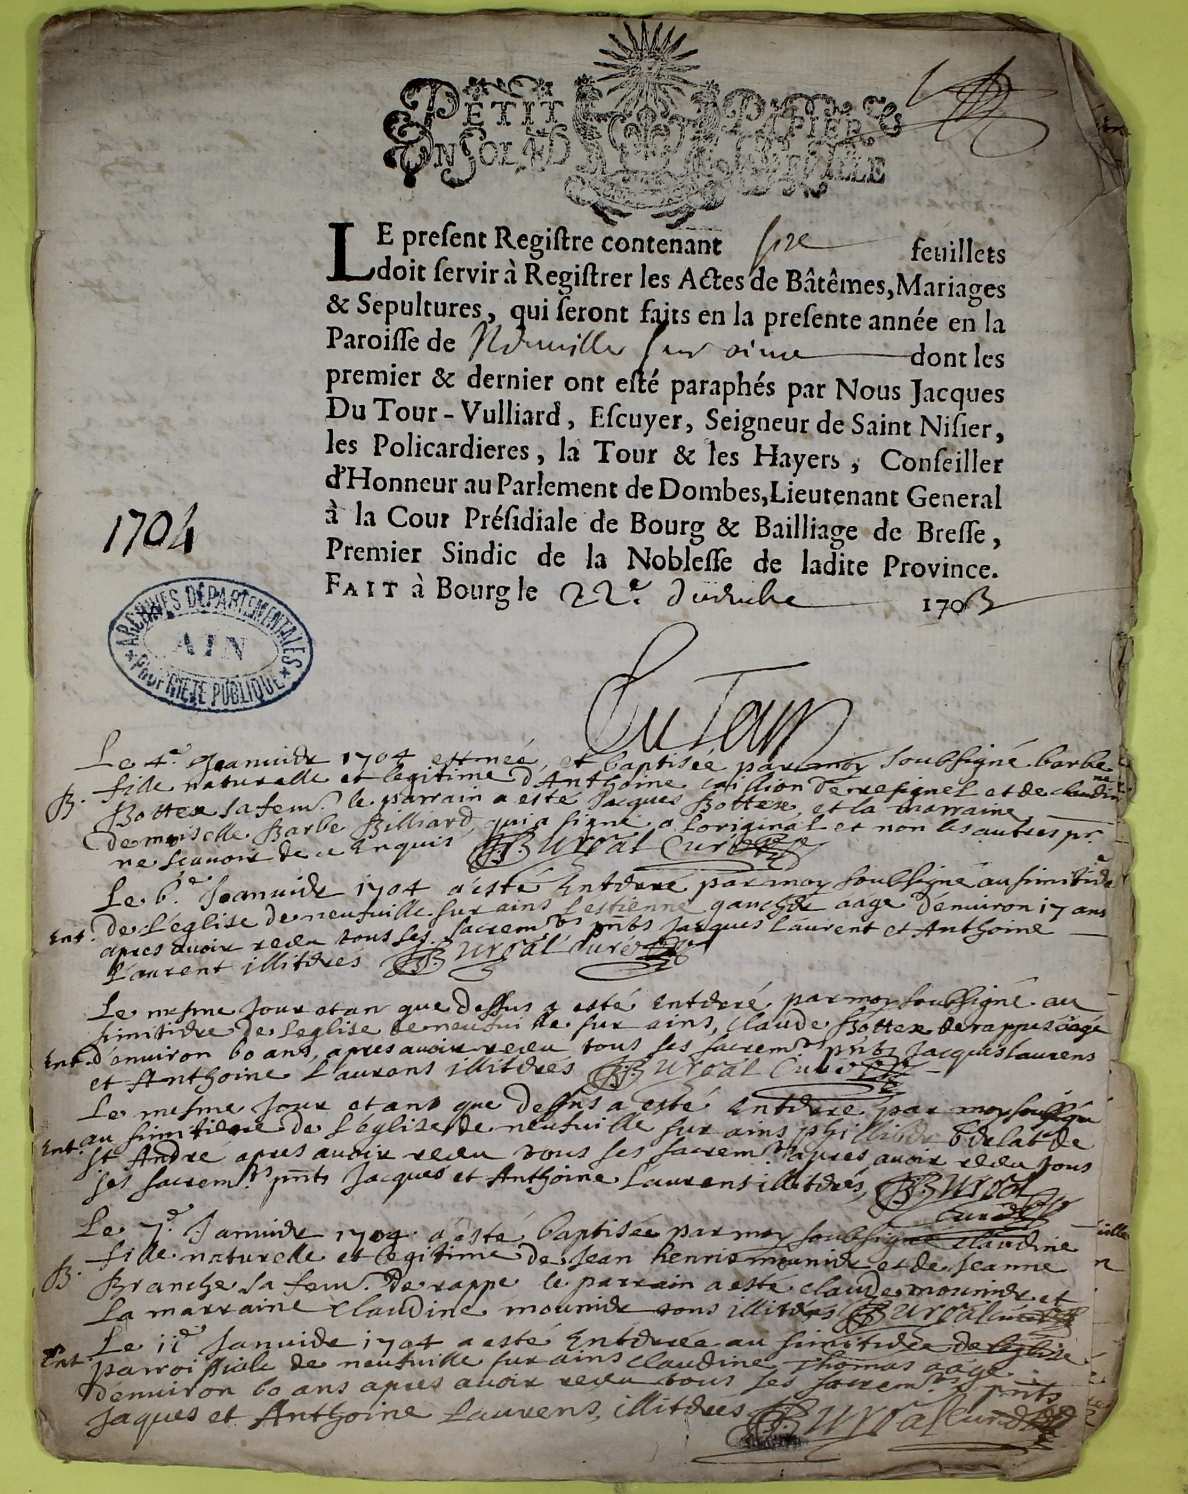 PETIT PAPIER
UN SOL 4 D LA FEUILLE
LE present Registre contenant seze feuillets
doit servir à Registrer les Actes de Bâtêmes, Mariages
& Sepultures, qui seront faits en la presente année en la
Paroisse de Neuville sur oin dont les
premier & dernier ont esté paraphés par Nous Jacques
Du Tour-Vulliard, Escuyer, Seigneur de Saint Nisier,
les Policardieres, la Tour & les Hayers, Conseiller
d'Honneur au Parlement de Dombes, Lieutenant General
à la Cour Présidiale de Bourg & Bailliage de Bresse,
Premier Sindic de la Noblesse de ladite Province.
FAIT à Bourg le 22e. 1703
1704
ARCHIVES DÉPARTEMENTALES
AIN
PROPRIÉTÉ PUBLIQUE
Du Tour
Le 4e. Jeanvier 1704 est née, et baptisée par moy soubsigné barbe
B. fille naturelle et legitime d'Anthoine et de claudine
Bottex sa fem. le parrain a esté Jacques Bottex, et la marraine
demoiselle Barbe Billiard, qui a signé a l'original et non les autres pr.
ne scavoir de ce Enquis BUroal Curé
Le 6e. Jeanvier 1704 a esté Enterré par moy soubsigné au simitiere
Ent. de l'eglise de neufville sur ains Lestienne gauche aage d'environ 17 ans
apres avoir receu tous ses sacremts pnts Jacques Laurent et Anthoine
Laurent illiteres BUroal Curé
Le mesme Jour et an que dessus a esté Enterré par moy soubsigné au
simitiere de l'eglise de neufville sur ains, Claude Bottex de rappes aagé
Ent. d'environ 60 ans, apres avoir receu tous ses sacremts pnts Jacques laurens
et Anthoine Laurens illiterés BUroal Curé
Le mesme Jour et ans que dessus a esté Enterré par moy soubsigné
Ent. au simitiere de l'eglise de neufville sur ains philliber de
St André apres avoir receu tous ses sacremts apres avoir receu tous
ses sacremts pnts Jacques et Anthoine Laurens illiterés, BUroal
Curé
Le 7e. Janvier 1704 a esté baptisée par moy soubsigné claudine
B. fille naturelle et legitime de Jean henrie mounier et de Jeanne
Branche sa fem. de rappe le parrain a esté claude mounier et
La marraine Claudine mounier tous illiteres BUroal curé
Le 11e Janvier 1704 a esté Enterrée au simitiere de l'eglise
Ent. parroissiale de neufville sur ains claudine Thomas aagé
d'environ 60 ans apres avoir receu tous ses sacremts pnts
Jaques et Anthoine Laurens, illiterés BUroal Curé